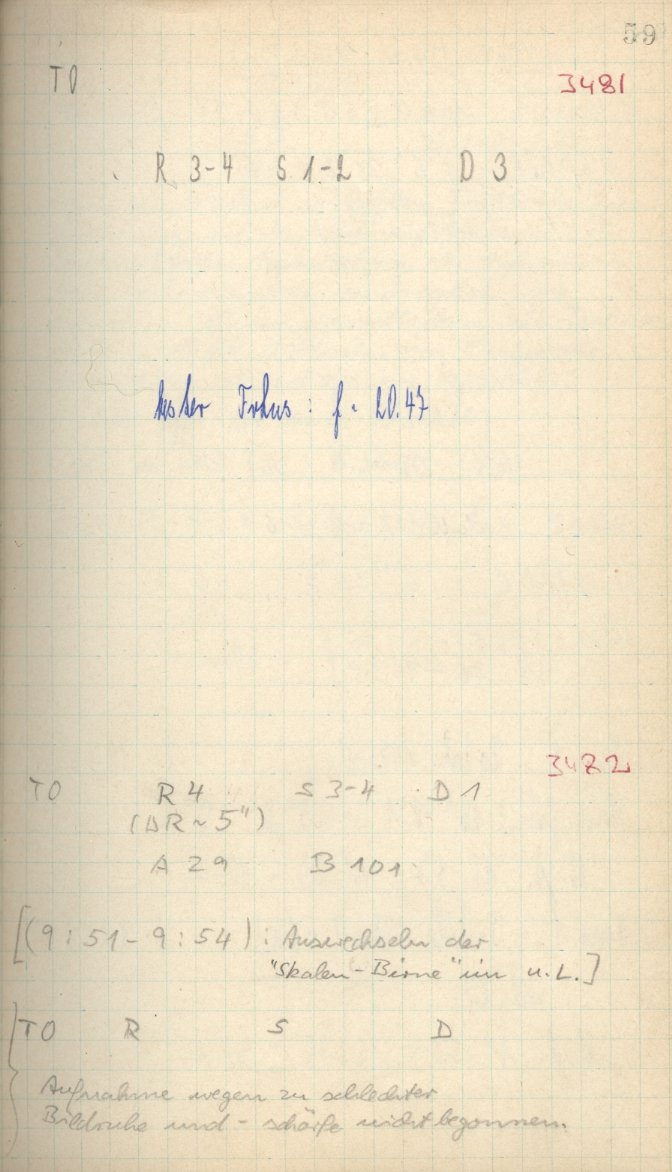 59
TO 3481
R 3-4 S 1-2 D 3
bester Fokus : f = 20.47
3482
TO R 4 S 3-4 D 1
(ΔR ~ 5")
A 29 B 101
[(9:51 - 9:54) : Auswechseln der
"Skalen-Birne" im u.L.]
TO R S D
Aufnahme wegen zu schlechter
Bildruhe und - schärfe nicht begonnen.